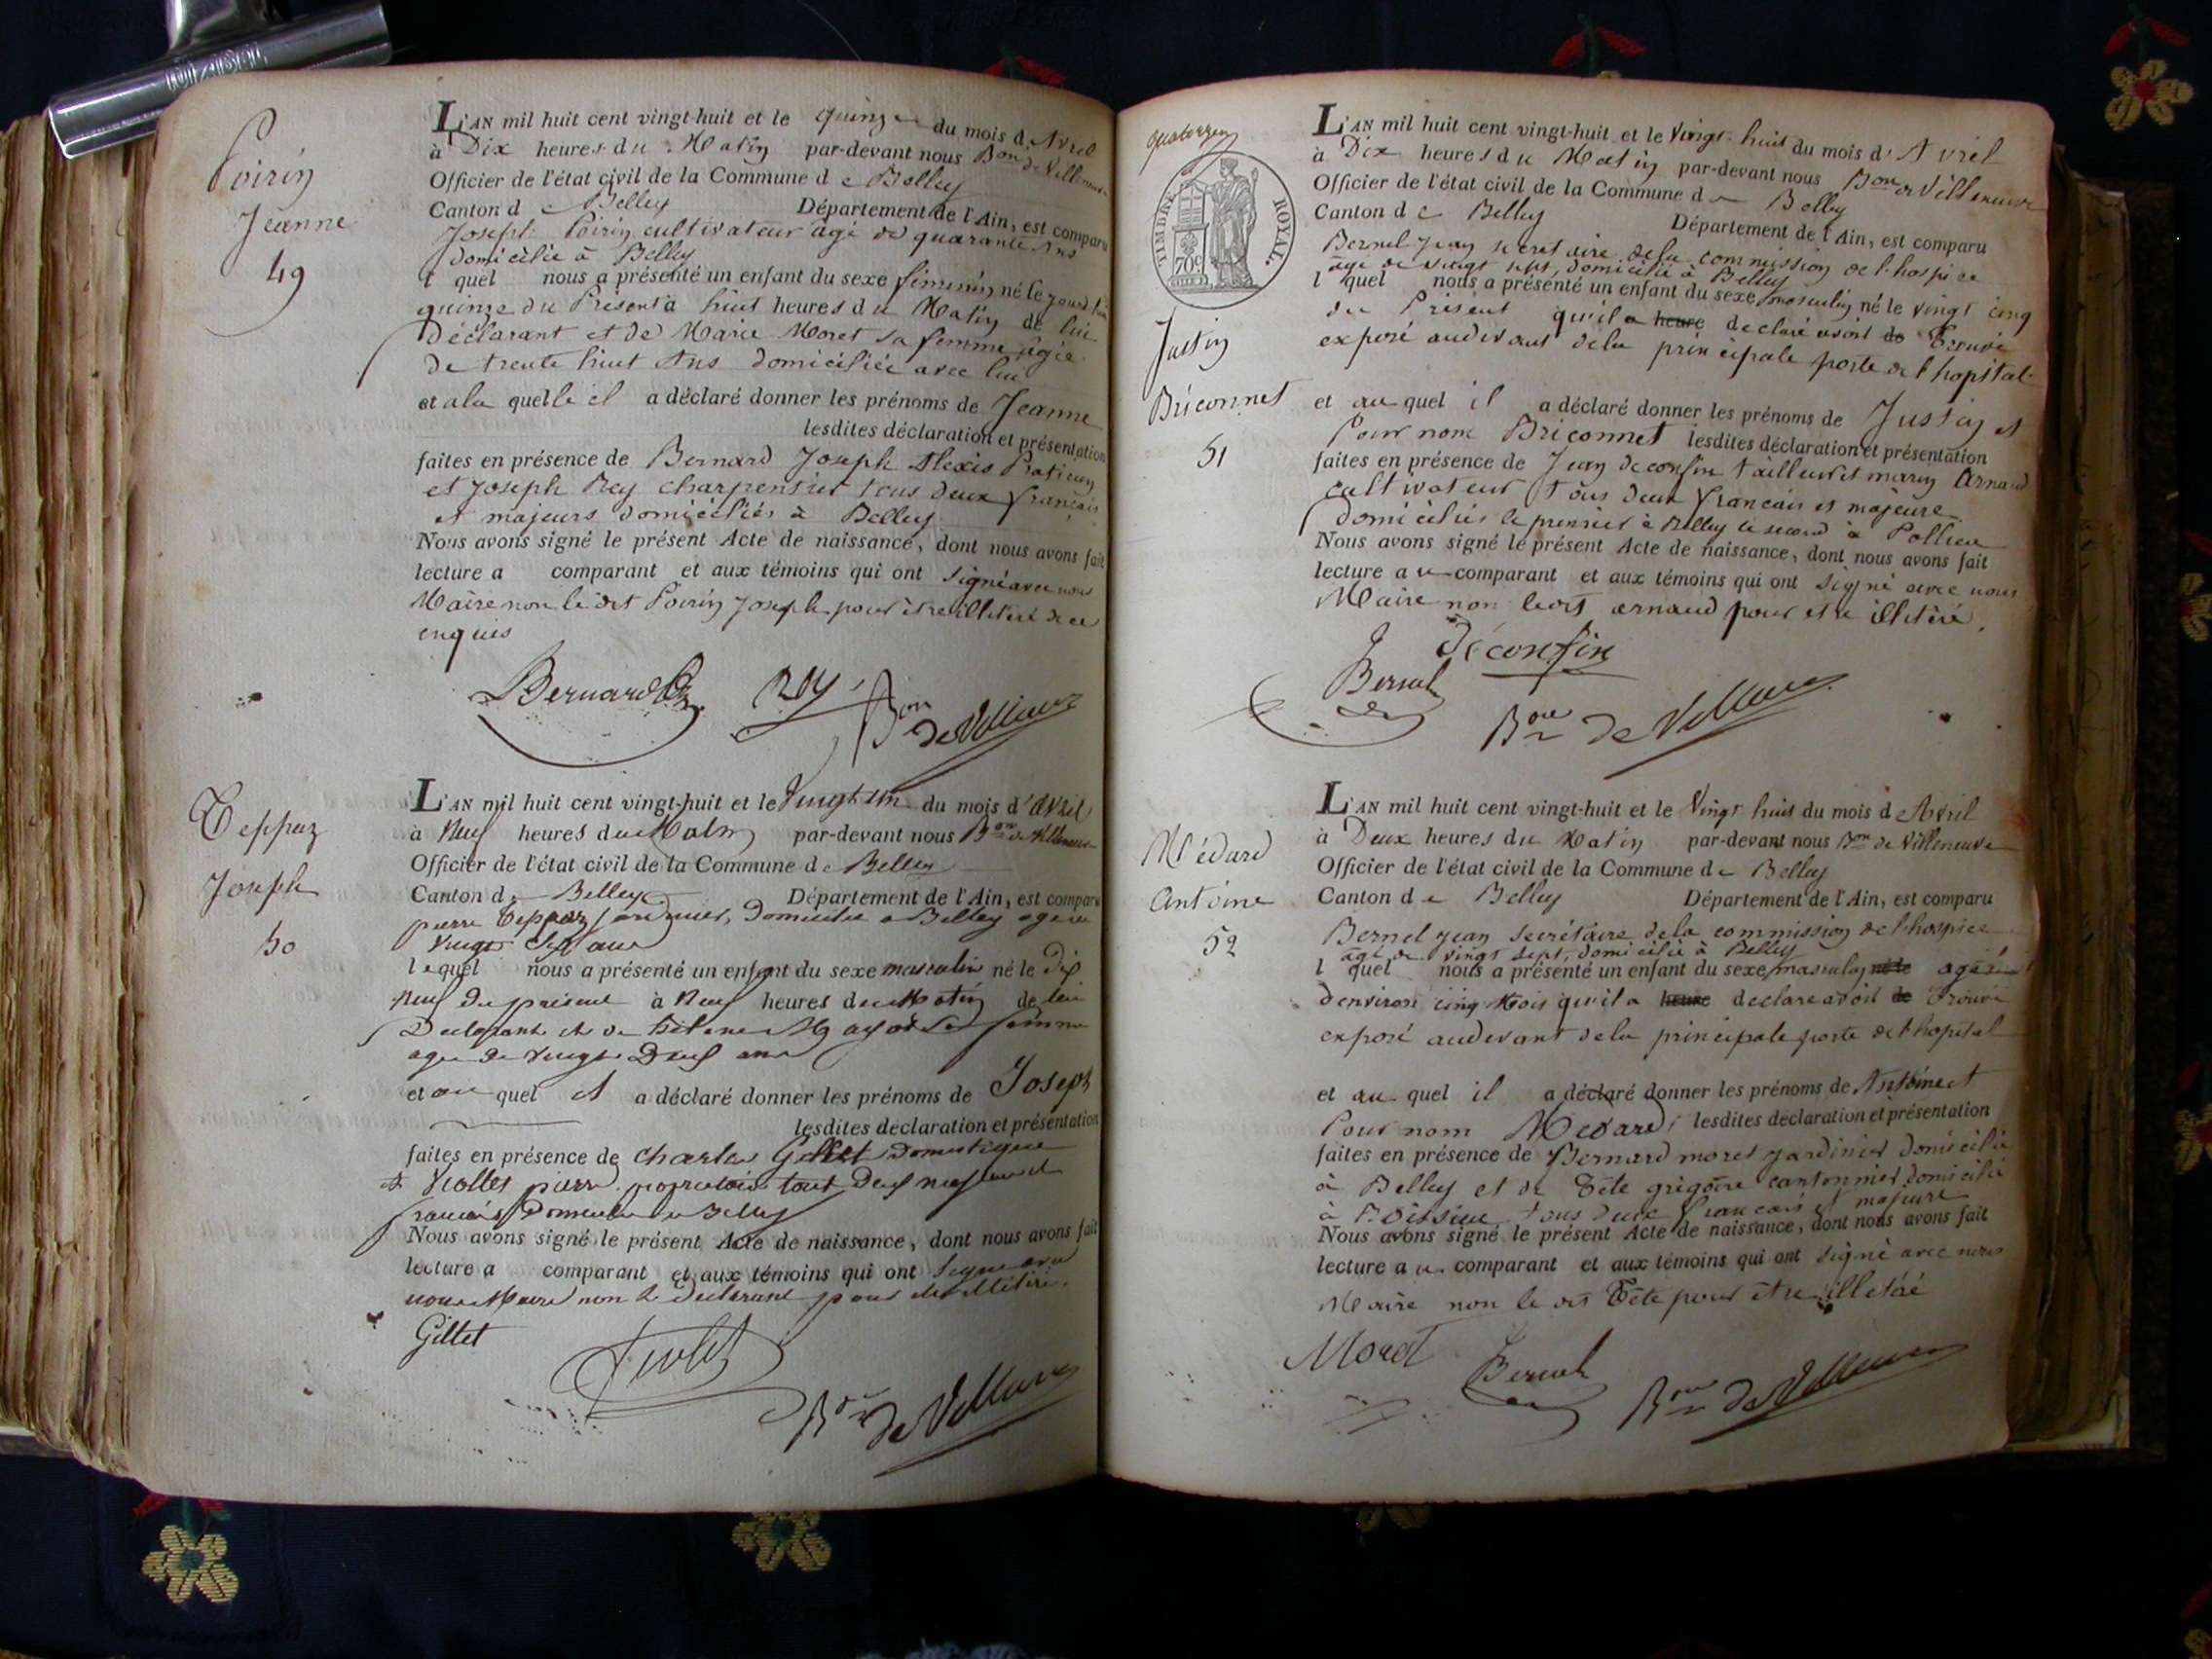 Poirin
Jeanne
49
L'AN mil huit cent vingt-huit et le quinze du mois d'Avril
à Dix heures du Matin par-devant nous Bon de Villeneuve
Officier de l'état civil de la Commune de Belley
Canton de Belley Département de l'Ain, est comparu
Joseph Poirin cultivateur âgé de quarante Ans
domicilié à Belley
l quel nous a présenté un enfant du sexe féminin né le jourd'hui
quinze du Présent à huit heures du Matin de lui
Déclarant et de Marie Moret sa femme âgée
de trente huit Ans domiciliée avec lui
et a la quelle il a déclaré donner les prénoms de Jeanne
lesdites déclaration et présentation
faites en présence de Bernard Joseph Alexis Praticien
et Joseph Rey charpentier tous deux français
et majeurs domiciliés à Belley
Nous avons signé le présent Acte de naissance, dont nous avons fait
lecture a comparant et aux témoins qui ont signé avec nous
Maire non le dit Poirin Joseph pour être illitéré de ce
enquis
Bernard Rey Bon de Villeneuve
Teppaz
Joseph
50
L'AN mil huit cent vingt-huit et le Vingt un du mois d'Avril
à Neuf heures du Matin par-devant nous Bon de Villeneuve
Officier de l'état civil de la Commune de Belley
Canton de Belley Département de l'Ain, est comparu
pierre Teppaz jardinier, domicilié a Belley agé de
vingt Sept ans
lequel nous a présenté un enfant du sexe masculin né le dix
neuf du présent à Neuf heures du Matin de lui
Déclarant et de hélène sa femme
agée de vingt Deux ans
et au quel il a déclaré donner les prénoms de Joseph
lesdites déclaration et présentation
faites en présence de Charles Gillet Domestique
et Viollet pierre proprietaire tout deux majeurs et
francais Domiciliés a Belley
Nous avons signé le présent Acte de naissance, dont nous avons fait
lecture a comparant et aux témoins qui ont Signé avec
nous Maire non le déclarant pour illitéré.
Gillet Violet
Bon de Villeneuve
quatorze
TIMBRE ROYAL.
70c
Justin
Briconnet
51
L'AN mil huit cent vingt-huit et le Vingt-huit du mois d'Avril
à Dix heures du Matin par-devant nous Bon de Villeneuve
Officier de l'état civil de la Commune de Belley
Canton de Belley Département de l'Ain, est comparu
Bernel Jean secretaire de la commission de l'hospice
âgé de vingt sept, domicilié à Belley
l quel nous a présenté un enfant du sexe masculin né le vingt cinq
du Présent qu'il a heure declaré avoit de Trouvé
exposé audevant de la principale porte de l'hopital
et au quel il a déclaré donner les prénoms de Justin et
Pour nom Briconnet lesdites déclaration et présentation
faites en présence de Jean deconfin tailleur et marin Arnaud
cultivateur tous deux français et majeure
domiciliés le premier à Belley le second à Pollieu
Nous avons signé le présent Acte de naissance, dont nous avons fait
lecture au comparant et aux témoins qui ont signé avec nous
Maire non ledit arnaud pour etre illitéré.
Déconfin
Bernel
Bon de Villeneuve
Médard
Antoine
52
L'AN mil huit cent vingt-huit et le Vingt huit du mois d'Avril
à Deux heures du Matin par-devant nous Bon de Villeneuve
Officier de l'état civil de la Commune de Belley
Canton de Belley Département de l'Ain, est comparu
Bernel Jean secrétaire de la commission de l'hospice
âgé de vingt sept, domicilié à Belley
l quel nous a présenté un enfant du sexe masculin né le agé
d'environ cinq Mois qu'il a heure declare avoit de Trouvé
exposé audevant de la principale porte de l'hopital
et au quel il a déclaré donner les prénoms de Antoine et
Pour nom Médard lesdites déclaration et présentation
faites en présence de Bernard moret jardinier domicilié
à Belley et de Tête grégoire cantonnier domicilié
à tous deux francais et majeure
Nous avons signé le présent Acte de naissance, dont nous avons fait
lecture au comparant et aux témoins qui ont signé avec nous
Maire non le dit Tête pour être illetéré
Moret Bernel Bon de Villeneuve